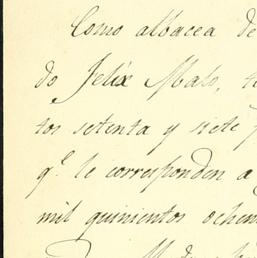 Como albacea de
do Felix Malo, t
tos setenta y siete p
q.e le corresponden a
mil quinientos ochen